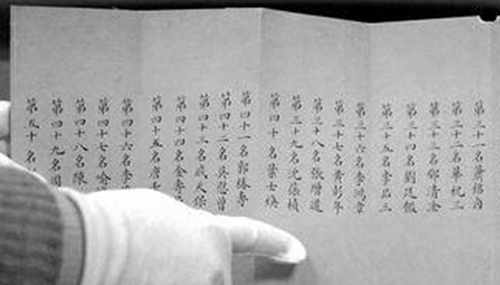 第三十一名
第三十二名華祝三
第三十三名鄒清淦
第三十四名劉廷
第三十五名李品三
第三十六名李鴻章
第三十七名黃彭年
第三十八名張增道
第三十九名沈葆楨
第四十名葉士煥
第四十一名郭椿壽
第四十二名吳
第四十三名
第四十四名金
第四十五名
第四十六名李
第四十七名
第四十八名陳
第四十九名
第五十名